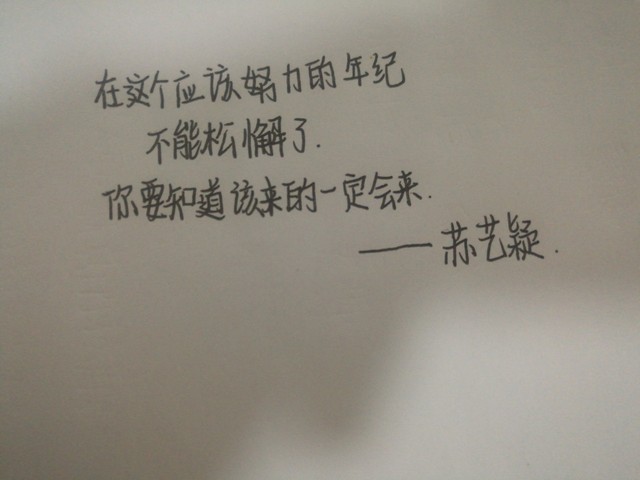 在这个应该努力的年纪
不能松懈了.
你要知道该来的一定会来.
——苏艺颖.